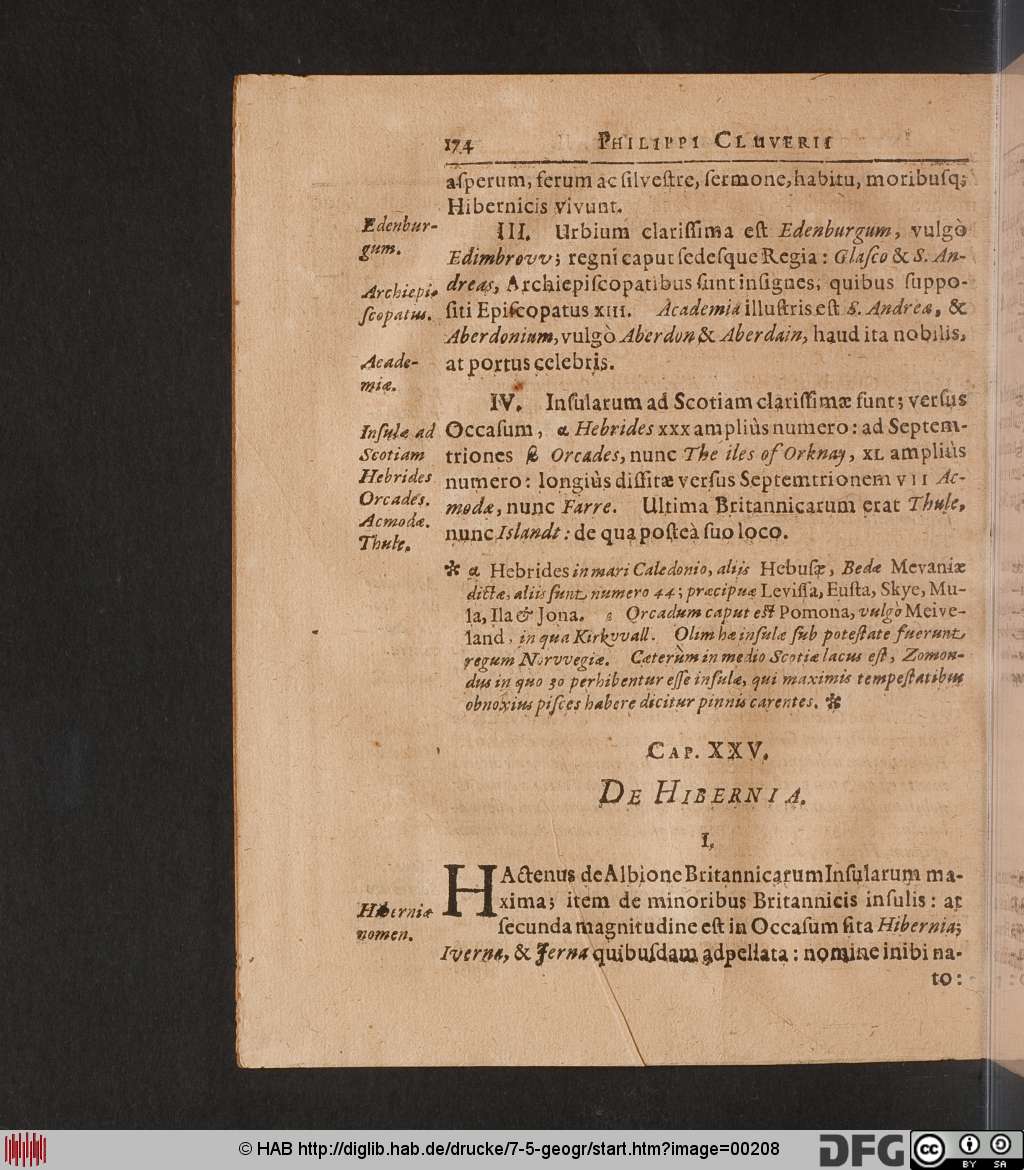 174 PHILIPPI CLUVERII
asperum, ferum ac silvestre, sermone, habitu, moribusq;
Hibernicis vivunt.
Edenbur-
gum.
III. Urbium clarissima est Edenburgum, vulgò
Edimbrovv; regni caput sedesque Regia: Glasco & S. An-
Archiepi-
scopatus.
dreas, Archiepiscopatibus sunt insignes, quibus suppo-
siti Episcopatus XIII. Academia illustris est S. Andreæ, &
Aberdonium, vulgò Aberdon & Aberdain, haud ita nobilis,
Acade-
miæ.
at portus celebris.
IV. Insularum ad Scotiam clarissimæ sunt; versus
Insulæ ad
Scotiam
Hebrides
Orcades.
Acmodæ.
Thule.
Occasum, a Hebrides XXX ampliùs numero: ad Septem-
triones Orcades, nunc The iles of Orknay, XL ampliùs
numero: longiùs dissitæ versus Septemtrionem VII Ac-
modæ, nunc Farre. Ultima Britannicarum erat Thule,
nunc Islandt: de qua posteà suo loco.
* a Hebrides in mari Caledonio, aliis Hebusæ, Bedæ Mevaniæ
dictæ, aliis sunt numero 44; præcipuæ Levissa, Eusta, Skye, Mu-
la, Ila & Jona. Orcadum caput est Pomona, vulgò Meive-
land, in qua Kirkvvall. Olim hæ insulæ sub potestate fuerunt
regum Norvvegiæ. Cæterùm in medio Scotiæ lacus est, Zomon-
dus in quo 30 perhibentur esse insulæ, qui maximis tempestatibus
obnoxius pisces habere dicitur pinnis carentes. *
CAP. XXV.
DE HIBERNIA.
I.
HActenus de Albione Britannicarum Insularum ma-
xima; item de minoribus Britannicis insulis: at
Hiberniæ
nomen.
secunda magnitudine est in Occasum sita Hibernia;
Iverna, & Jerna quibusdam adpellata: nomine inibi na-
to:
© HAB http://diglib.hab.de/drucke/7-5-geogr/start.htm?image=00208
DFG
cc
BY SA